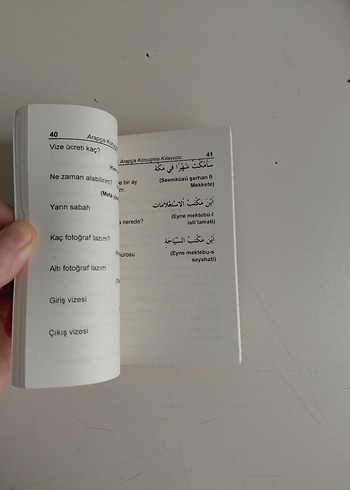 40
Arapça Konuşma
Vize ücreti kaç?
Ne zaman alabilirim?
(Meta
Yarın sabah
Kaç fotoğraf lazım?
Altı fotoğraf lazım
Giriş vizesi
Çıkış vizesi
Arapça Konuşma Kılavuzu 41
سأمكث شهرا في مكة
e bir ay
(Seemküsü şerhan fi
Mekkete)
أين مكتب الاستعلامات
a nerede?
(Eyne mektebü-l
istİ'lamati)
أين مكتب السياحة
bürosu
(Eyne mektebu-s
seyahati)